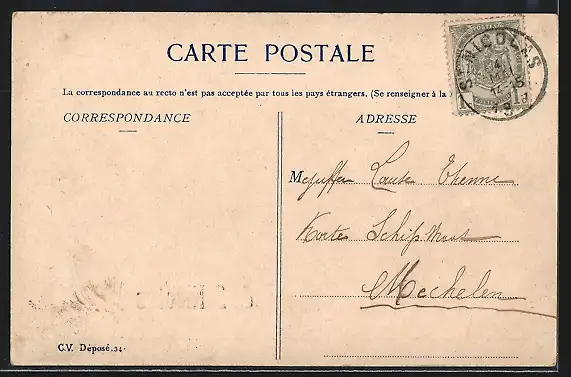 CARTE POSTALE
La correspondance au recto n'est pas acceptée par tous les pays étrangers. (Se renseigner à la
CORRESPONDANCE
ADRESSE
Mejuffer Louise Etienne
Korte Schipstraat
Mechelen
C.V. Déposé. 34.
ST NICOLAS